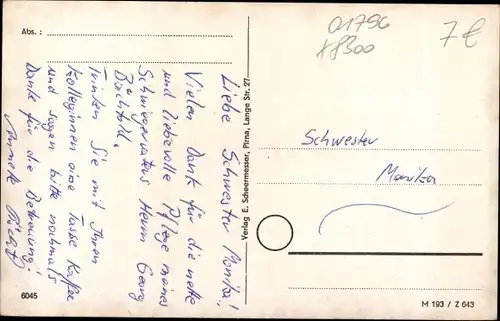 Abs.:
Liebe Schwester Monika!
Vielen Dank für die nette
und liebevolle Pflege meines
Schwiegervaters Herrn Georg
Trinken Sie mit Ihren
Kolleginnen eine Tasse Kaffee
und sagen bitte nochmals
Danke für die Betreuung!
Annette
6045
Verlag E. Scheermesser, Pirna, Lange Str. 27
01796
7€
Schwester
Monika
M 193 / Z 643